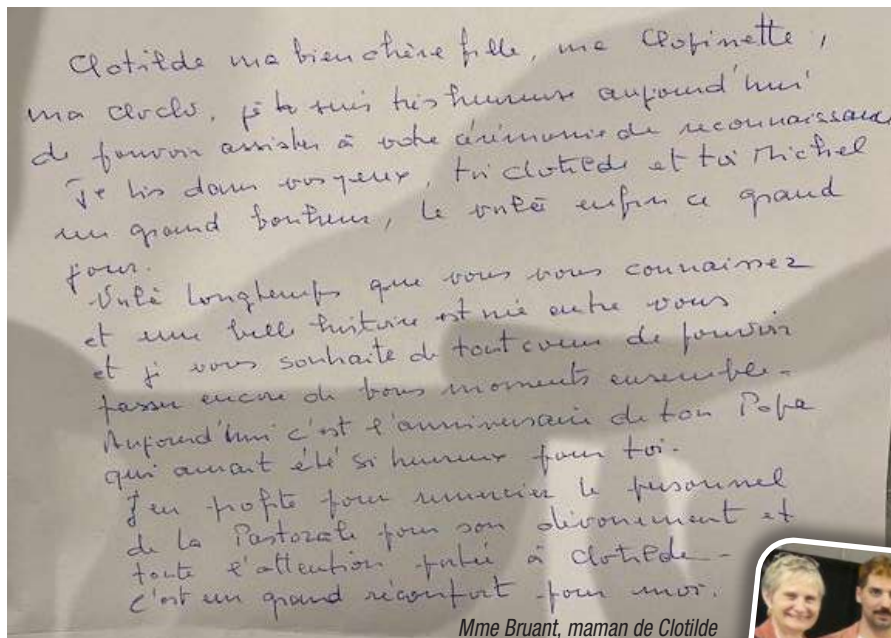 Clotilde ma bien chère fille, ma Clopinette,
ma cloclo, je suis très heureuse aujourd'hui
de pouvoir assister à votre cérémonie de reconnaissance
Je lis dans vos yeux, toi Clotilde et toi Michel
un grand bonheur, le voilà enfin ce grand
jour.
Voilà longtemps que vous vous connaissez
et une belle histoire est née entre vous
et je vous souhaite de tout cœur de pouvoir
passer encore de bons moments ensemble.
Aujourd'hui c'est l'anniversaire de ton Papa
qui aurait été si heureux pour toi.
J'en profite pour remercier le personnel
de la Pastorale pour son dévouement et
toute l'attention portée à Clotilde -
c'est un grand réconfort pour moi.
Mme Bruant, maman de Clotilde